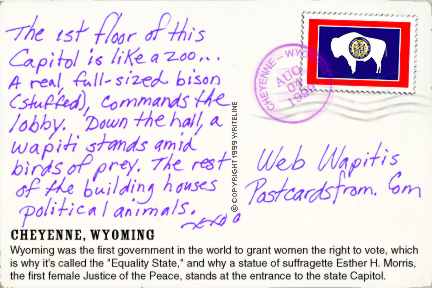 The 1st floor of this
Capitol is like a zoo...
A real, full-sized bison
(stuffed), commands the
lobby. Down the hall, a
wapiti stands amid
birds of prey. The rest
of the building houses
political animals.
CHEYENNE – WYO
AUG
© COPYRIGHT 1999 WRITELINE
Web Wapitis
Postcardsfrom.Com
CHEYENNE, WYOMING
Wyoming was the first government in the world to grant women the right to vote, which
is why it's called the "Equality State," and why a statue of suffragette Esther H. Morris,
the first female Justice of the Peace, stands at the entrance to the state Capitol.